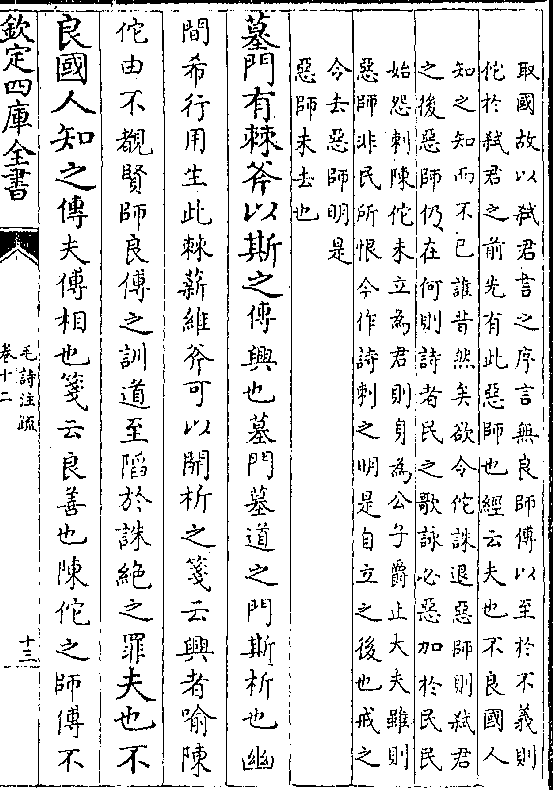 取國故以弑君言之序言無良師傅以至於不義則
佗於弑君之前先有此惡師也經云夫也不良國人
知之知而不已誰昔然矣欲令佗誅退惡師則弑君
之後惡師仍在何則詩者民之歌詠必惡加於民民
始怨刺陳佗未立為君則身為公子爵止大夫雖則
惡師非民所恨今作詩刺之明是自立之後也戒之
令去惡師明是
惡師未去也
墓門有棘斧以斯之傳興也墓門墓道之門斯析也幽
間希行用生此棘薪維斧可以開析之箋云興者喻陳
佗由不覩賢師良傅之訓道至陷於誅絶之罪夫也不
良國人知之傳夫傅相也箋云良善也陳佗之師傅不
欽定四庫全書
毛詩注疏
卷十二
十三